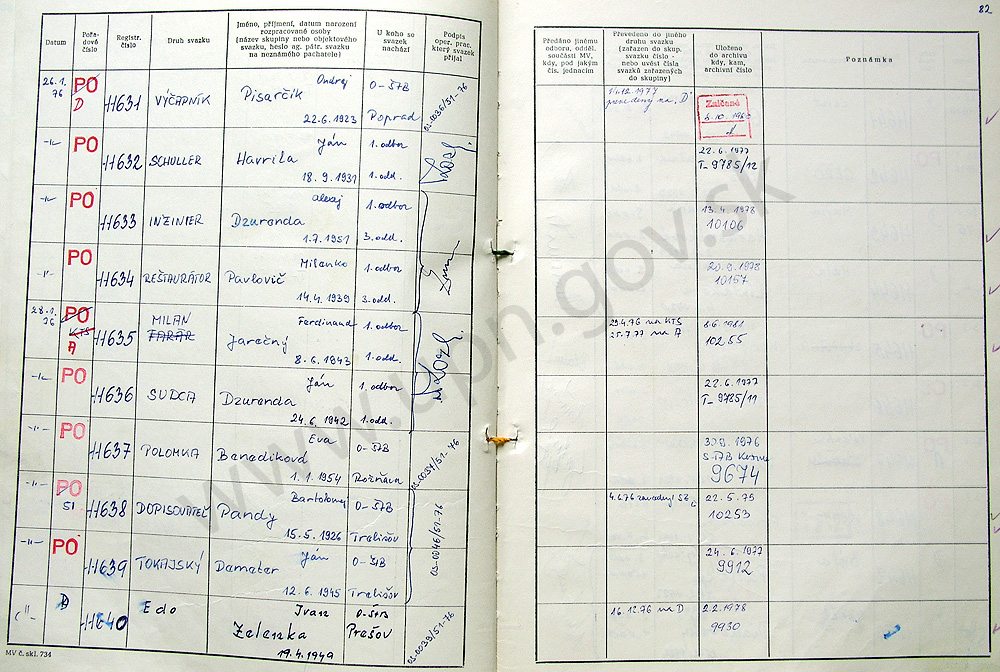 82
Datum
Pořadové číslo
Registr. číslo
Druh svazku
Jméno, příjmení, datum narození rozpracované osoby (název skupiny nebo objektového svazku, heslo ag. pátr. svazku na neznámého pachatele)
U koho se svazek nachází
Podpis oper. prac. který svazek přijal
Předáno jinému odboru, odděl. součásti MV, kdy, pod jakým čís. jednacím
Převedeno do jiného druhu svazku (zařazen do skup. svazku číslo - nebo uvést čísla svazků zařazených do skupiny)
Uloženo do archivu kdy, kam, archivní číslo
Poznámka
26.1. 76 PO D 11631 VÝČAPNÍK Ondrej Pisarčik 22.6.1923 O-ŠTB Poprad 03-0036/51-76
14.12.1977 prevedený na "D" Zničené
PO 11632 SCHULLER Ján Havrila 18.9.1931 1. odbor 1. odd.
22.6.1977 T-9785/12
PO 11633 INŽINIER Alexej Dzuranda 1.7.1951 1. odbor 3. odd.
13.4.1978 10106
PO 11634 REŠTAURÁTOR Milenko Pavlovič 14.4.1939 1. odbor 3. odd.
20.9.1978 10157
28.1. 76 PO KTS A 11635 MILAN FARÁR Ferdinand Jarečný 8.6.1943 1. odbor 1. odd.
29.4.76 na KTS 25.7.77 na A 8.6.1981 10255
PO 11636 SUDCA Ján Dzuranda 24.6.1942 1. odbor 1. odd.
22.6.1977 T-9785/11
PO 11637 POLOMKA Eva Benediková 1.1.1954 O-ŠTB Rožňava 03-0034/51-76
30.9.1976 9674
PO SI 11638 DOPISOVATEĽ Bartolomej Pandy 15.5.1926 O-ŠTB Trebišov 03-0046/51-76
4.6.76 22.5.79 10253
PO 11639 TOKAJSKÝ Ján Damater 12.6.1945 O-ŠTB Trebišov
24.6.1977 9912
D 11640 Edo Ivan Zelenka 19.4.1949 O-ŠTB Prešov 03-0039/51-76
16.12.76 na D 2.2.1978 9930
MV č. skl. 734
www.upn.gov.sk